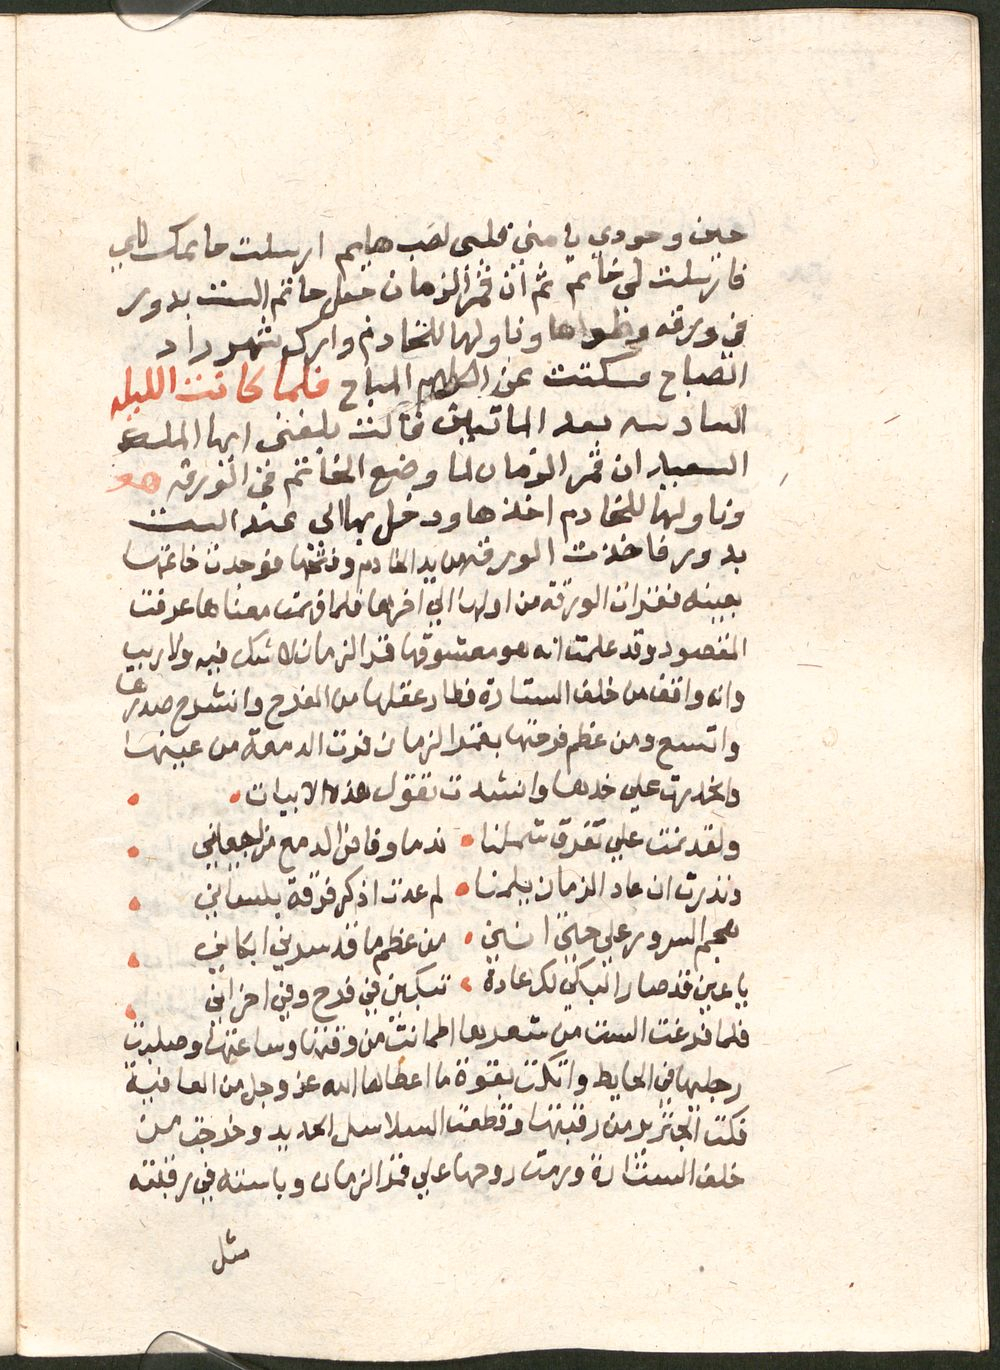 حين وجودي يا منى قلبي لصب هايم ارسلت خاتمك لي
فارسلت لي خاتم ثم ان قمر الزمان جعل خاتم الست بدور
في ورقه وطواها وناولها للخادم وادرك شهرزاد
الصباح فسكتت عن الكلام المباح فلما كانت الليله
السادسه بعد الماتين قالت بلغني ايها الملك
السعيد ان قمر الزمان لما وضع الخاتم في الورقه هو
وناولها للخادم اخذها ودخل بها الى عند الست
بدور فاخذت الورقه من يد الخادم وفتحتها فوجدت خاتمها
بعينه فقرات الورقه من اولها الي اخرها فلما فهمت معناها عرفت
المقصود وقد علمت انه هو معشوقها قمر الزمان لا شك فيه ولا ريب
وانه واقف من خلف الستارة فطار عقلها من الفرح وانشرح صدرها
واتسع ومن عظم فرحتها بقمر الزمان فرت الدمعة من عينها
وانحدرت علي خدها وانشدت تقول هذه الابيات
ولقد ندمت علي تفرق شملنا • ندما وفاض الدمع من اجفاني
ونذرت ان عاد الزمان يلمنا • لم عدت اذكر فرقة بلساني
هجم السرور علي حتي انني • من عظم ما قد سرني ابكاني
يا عين قد صار البكى لك عادة • تبكين في فرح وفي احزاني
فلما فرغت الست من شعرها اطمانت من وقتها وساعتها وصلبت
رجليها في الحايط واتكت بقوة ما اعطاها الله عز وجل من العافية
فكت الجنزير من رقبتها وقطعت السلاسل الحديد وخرجت من
خلف الستارة ورمت روحها علي قمر الزمان وباسته في رقبته
مثل